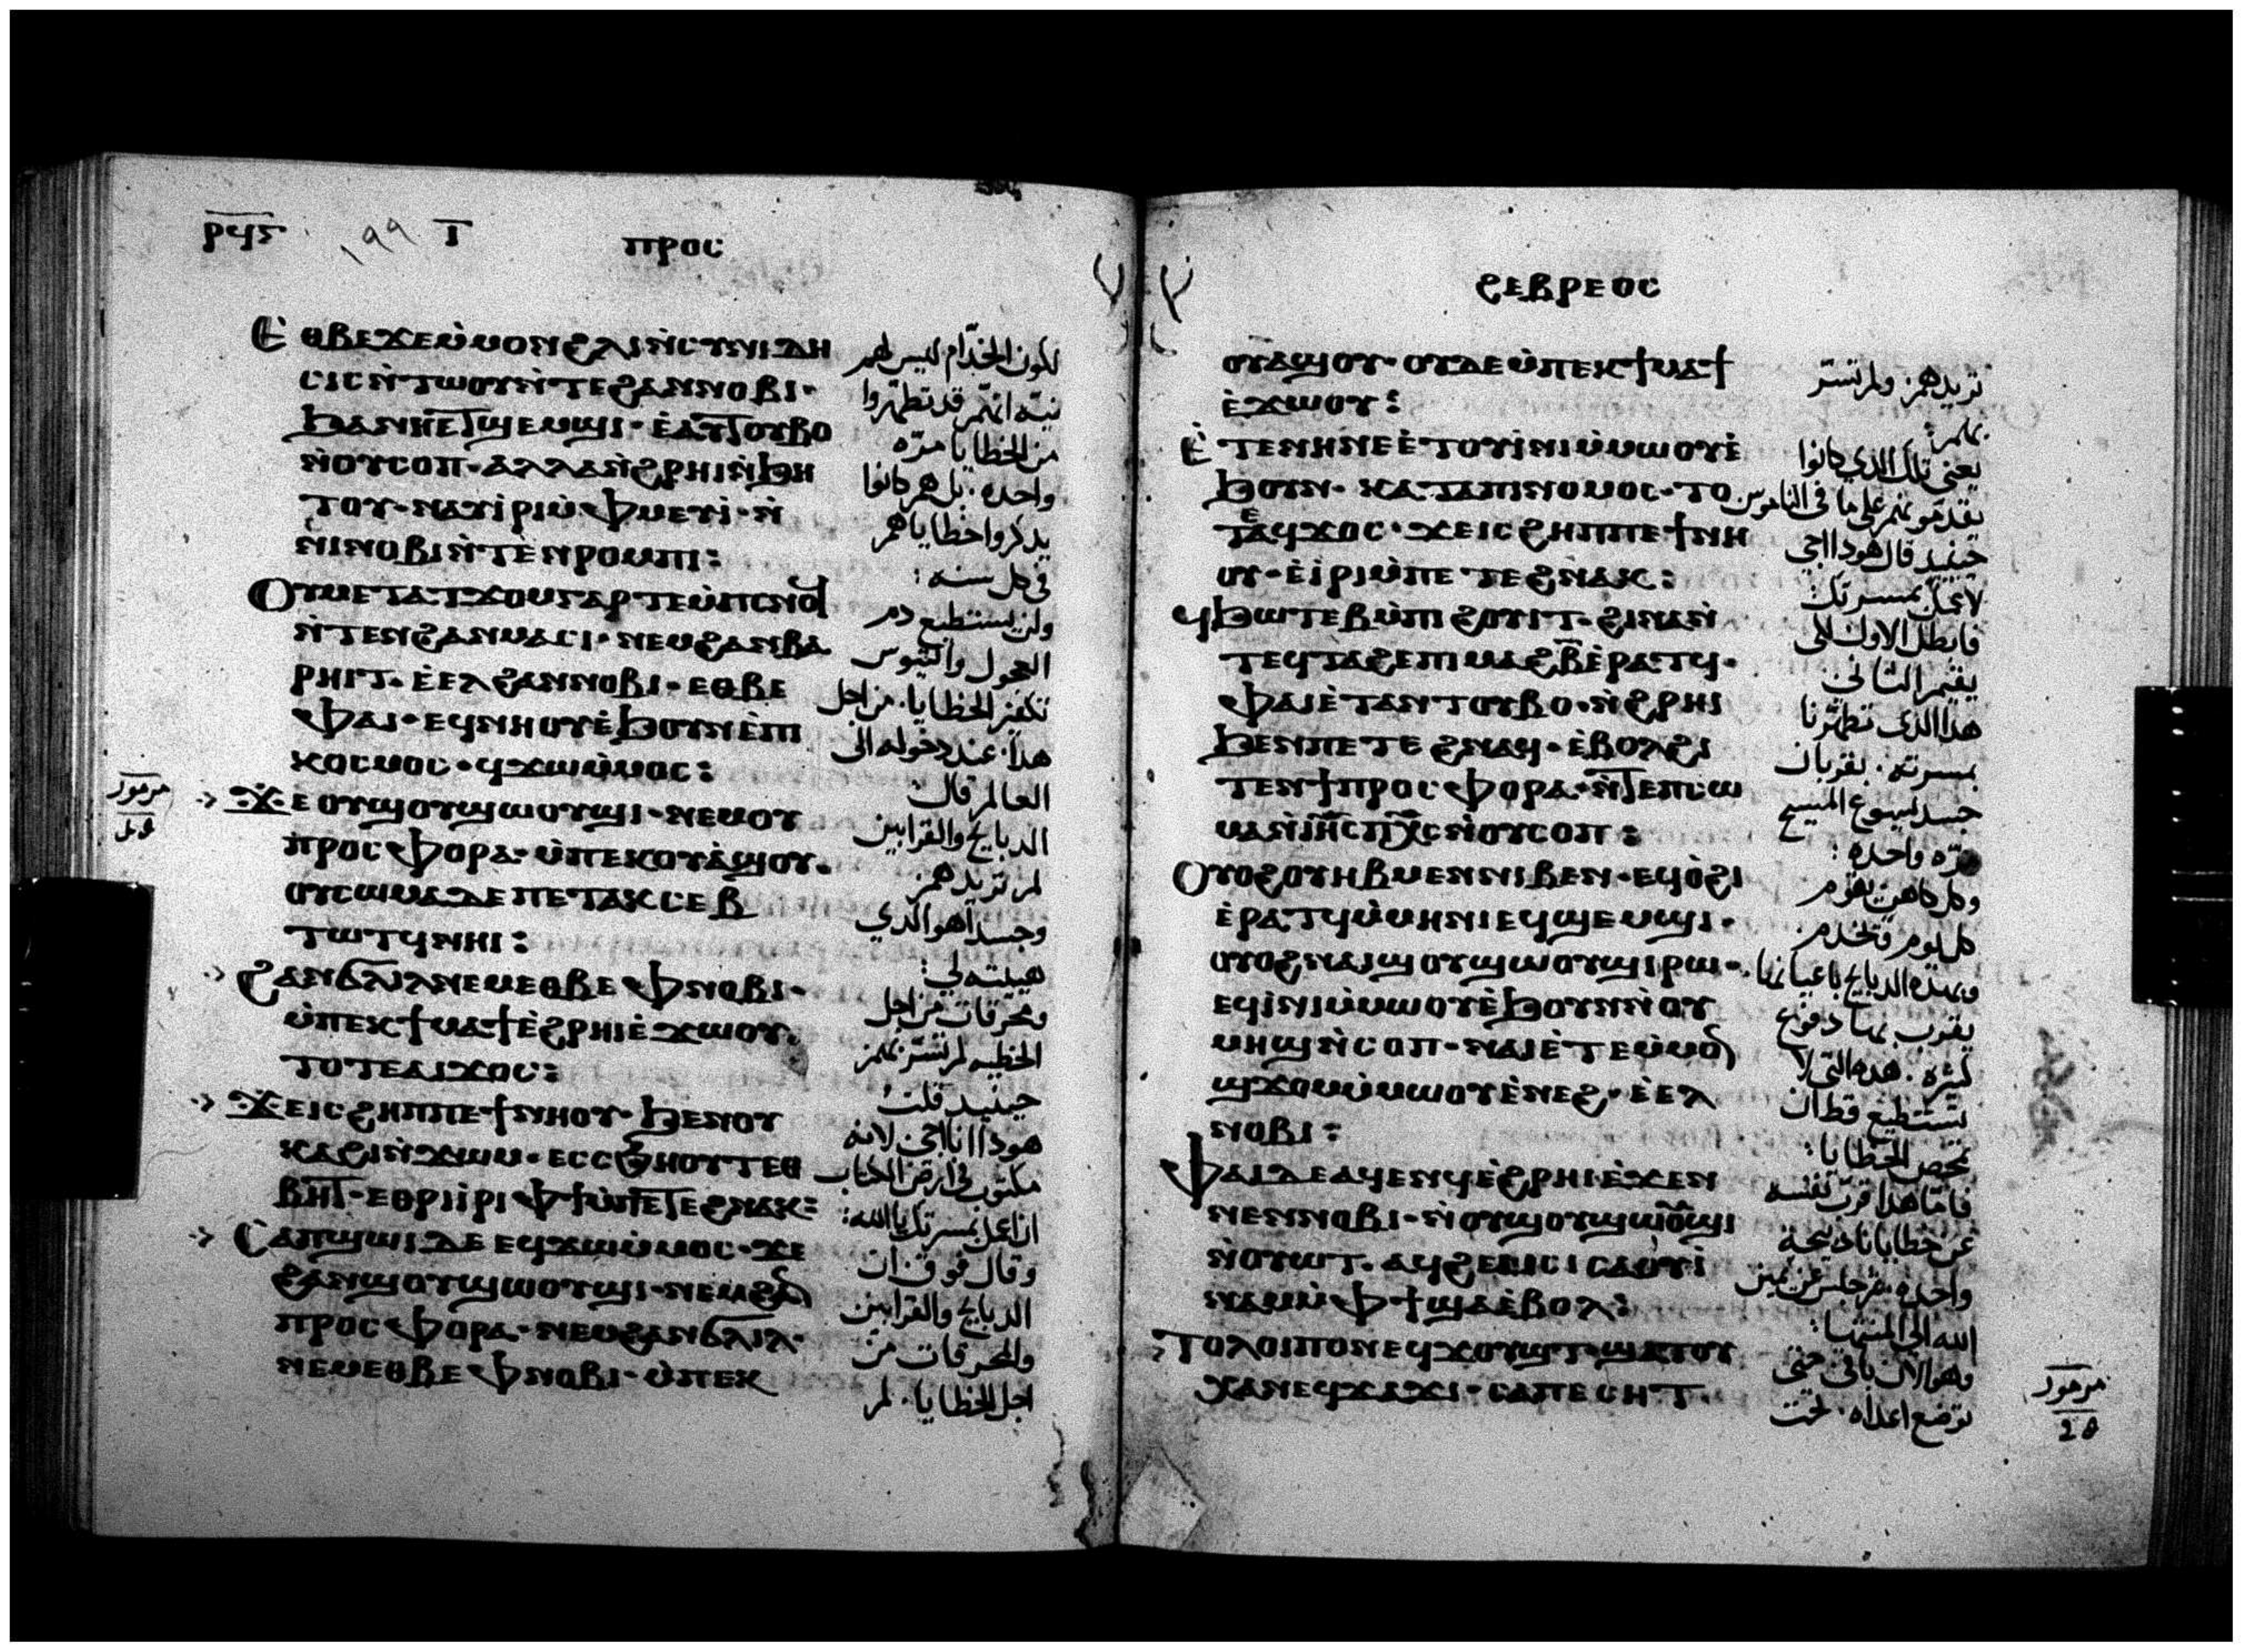 ⲣϥⲋ ١٩٩ ⲓ ⲡⲣⲟⲥ
ⲉⲑⲃⲉϫⲉⲙ̇ⲙⲟⲛϩⲗⲓⲛ̇ⲥⲩⲛⲓⲇⲏ
ⲥⲓⲥⲛ̇ⲧⲱⲟⲩⲛ̇ⲧⲉϩⲁⲛⲛⲟⲃⲓ·
ϧⲁⲛⲏⲉⲧϣⲉⲙϣⲓ·ⲉ̇ⲁⲩⲧⲟⲩⲃⲟ
ⲛ̇ⲟⲩⲥⲟⲡ·ⲁⲗⲗⲁⲛ̇ϩⲣⲏⲓⲛ̇ϧⲏ
ⲧⲟⲩ·ⲛⲁⲩⲓ̇ⲣⲓⲙ̇ⲫⲙⲉⲩⲓ̇·ⲛ̇
ⲛⲓⲛⲟⲃⲓⲛ̇ⲧⲉⲛⲣⲟⲙⲡⲓ:
ⲟⲩⲙⲉⲧⲁⲧϫⲟⲙⲅⲁⲣⲧⲉⲙ̇ⲡⲥⲛⲟϥ
ⲛ̇ⲧⲉⲛϩⲁⲛⲙⲁⲥⲓ·ⲛⲉⲙϩⲁⲛⲃⲁ
ⲣⲏⲓⲧ·ⲉ̇ⲉⲗϩⲁⲛⲛⲟⲃⲓ·ⲉⲑⲃⲉ
ⲫⲁⲓ·ⲉϥⲛⲏⲟⲩⲉ̇ϧⲟⲩⲛⲉ̇ⲡⲓ
ⲕⲟⲥⲙⲟⲥ·ϥϫⲱⲙ̇ⲙⲟⲥ:
ϫⲉⲟⲩϣⲟⲩϣⲱⲟⲩϣⲓ·ⲛⲉⲙⲟⲩ
ⲡⲣⲟⲥⲫⲟⲣⲁ·ⲙ̇ⲡⲉⲕⲟⲩⲁ̇ϣⲟⲩ·
ⲟⲩⲥⲱⲙⲁⲇⲉⲡⲉⲧⲁⲕⲥⲉⲃ
ⲧⲱⲧϥⲛⲏⲓ:
ϩⲁⲛϭⲗⲓⲗⲛⲉⲙⲉⲑⲃⲉⲫⲛⲟⲃⲓ·
ⲙ̇ⲡⲉⲕϯⲙⲁϯⲉ̇ϩⲣⲏⲓⲉ̇ϫⲱⲟⲩ·
ⲧⲟⲧⲉⲁⲓϫⲟⲥ:
ϫⲉⲓⲥϩⲏⲡⲡⲉϯⲛⲏⲟⲩ·ϧⲉⲛⲟⲩ
ⲕⲉϥⲁⲗⲓⲥ
ⲃⲏⲧ·ⲉⲑⲣⲓⲓ̇ⲣⲓⲫϯⲙ̇ⲡⲉⲧⲉϩⲛⲁⲕ:
ⲥⲁⲡϣⲱⲓⲇⲉⲉϥϫⲱⲙ̇ⲙⲟⲥ·ϫⲉ
ϩⲁⲛϣⲟⲩϣⲱⲟⲩϣⲓ·ⲛⲉⲙϩⲁⲛ
ⲡⲣⲟⲥⲫⲟⲣⲁ·ⲛⲉⲙϩⲁⲛϭⲗⲓⲗ·
ⲛⲉⲙⲉⲑⲃⲉⲫⲛⲟⲃⲓ·ⲙ̇ⲡⲉⲕ
لكون الخدّام ليس لهم
نيته انهم قد تطهروا
من الخطايا مرّه
واحده. بل هم كانوا
يدكروا خطاياهم
في كل سنه:
ولن يستطيع دم
العجول والتيوس
تكفر الخطايا. من اجل
هدا. عند دخوله الى
العالم قال
الدبايح والقرابين
لم تريدهم
وجسداً هو الدي
هييته لي:
ومحرقات من اجل
الخطيه لم تسر بهم
حينيد قلت
هودا انا اجي لانه
مكتوب في
ان اعمل بمسرتك يا الله:
وقال فوق ان
الدبايح والقرابين
والمحرقات من
اجل الخطايا. لم
مزمور
ϩⲉⲃⲣⲉⲟⲥ
ⲟⲩⲁϣⲟⲩ·ⲟⲩⲇⲉⲙ̇ⲡⲉⲕϯⲙⲁϯ
ⲉ̇ϫⲱⲟⲩ:
ⲉ̇ⲧⲉⲛⲏⲛⲉⲉ̇ⲧⲟⲩⲓ̇ⲛⲓⲙ̇ⲙⲱⲟⲩⲉ̇
ϧⲟⲩⲛ·ⲕⲁⲧⲁⲡⲓⲛⲟⲙⲟⲥ·ⲧⲟ
ⲧⲉⲁϥϫⲟⲥ·ϫⲉⲓⲥϩⲏⲡⲡⲉϯⲛⲏ
ⲟⲩ·ⲉ̇ⲓ̇ⲣⲓⲙ̇ⲡⲉⲧⲉϩⲛⲁⲕ:
ϥϧⲱⲧⲉⲃⲙ̇ⲡⲓϩⲟⲩⲓⲧ·ϩⲓⲛⲁⲛ̇
ⲧⲉϥⲧⲁϩⲉⲡⲓⲙⲁϩⲃ̅ⲉ̇ⲣⲁⲧϥ·
ⲫⲁⲓⲉ̇ⲧⲁⲛⲧⲟⲩⲃⲟ·ⲛ̇ϩⲣⲏⲓ
ϧⲉⲛⲡⲉⲧⲉϩⲛⲁϥ·ⲉ̇ⲃⲟⲗϩⲓ
ⲧⲉⲛϯⲡⲣⲟⲥⲫⲟⲣⲁ·ⲛ̇ⲧⲉⲡⲥⲱ
ⲙⲁⲛ̇ⲓⲏ̅ⲥⲡⲭ̅ⲥⲛ̇ⲟⲩⲥⲟⲡ:
ⲟⲩⲟϩⲟⲩⲏⲃⲙⲉⲛⲛⲓⲃⲉⲛ·ⲉϥⲟ̇ϩⲓ
ⲉ̇ⲣⲁⲧϥⲙ̇ⲙⲏⲛⲓⲉϥϣⲉⲙϣⲓ·
ⲟⲩⲟϩⲛⲁⲓϣⲟⲩϣⲱⲟⲩϣⲓⲣⲱ·
ⲉϥⲓ̇ⲛⲓⲙ̇ⲙⲱⲟⲩⲉ̇ϧⲟⲩⲛⲛ̇ⲟⲩ
ⲙⲏϣⲛ̇ⲥⲟⲡ·ⲛⲁⲓⲉ̇ⲧⲉⲙ̇ⲙⲟⲛ
ϣϫⲟⲙⲙ̇ⲙⲱⲟⲩⲉ̇ⲛⲉϩ·ⲉ̇ⲉⲗ
ⲛⲟⲃⲓ:
ⲫⲁⲓⲇⲉⲁϥⲉⲛϥⲉ̇ϩⲣⲏⲓⲉ̇ϫⲉⲛ
ⲛⲉⲛⲛⲟⲃⲓ·ⲛ̇ⲟⲩϣⲟⲩϣⲱⲟⲩϣⲓ
ⲛ̇ⲟⲩⲱⲧ·ⲁϥϩⲉⲙⲥⲓⲥⲁⲟⲩⲓ̇
ⲛⲁⲙⲙ̇ⲫϯϣⲁⲉ̇ⲃⲟⲗ:
ⲧⲟⲗⲟⲓⲡⲟⲛⲉϥϫⲟⲩϣⲧ·ϣⲁⲧⲟⲩ
ⲭⲁⲛⲉϥϫⲁϫⲓ·ⲥⲁⲡⲉⲥⲏⲧ·
تريدهم ولم تسر
بهم:
يعني تلك الدي كانوا
يقدمونهم على ما في الناموس
حينيد قال هودا اجي
لاعمل بمسرتك
فابطل الاول لكي
يقيم الثاني
هدا الدي تطهرنا
بمسرته. بقربان
جسد ليسوع المسيح
مرّه واحده:
وكل كاهن يقوم
كل يوم ويخدم
وبهده الدبايح باعيانها
يقرب بها دفوع
كثيره. هده التي لا
تستطيع قط ان
تمحص الخطايا:
فامّا هدا قرب نفسه
عن خطايانا دبيحة
واحده. ثم جلس عن يمين
الله الى المنتها:
وهو الان باقي حتى
توضع اعداه. تحت
مزمور